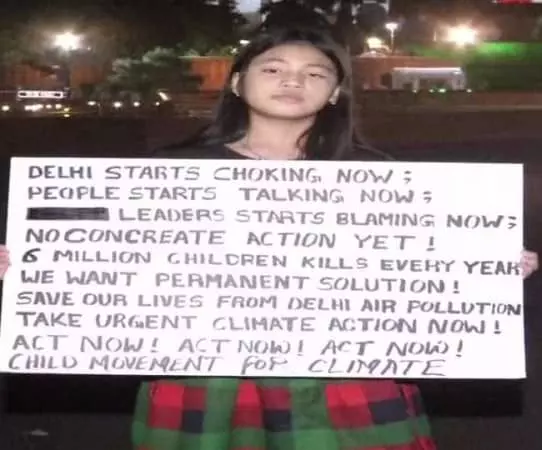 DELHI STARTS CHOKING NOW ;
PEOPLE STARTS TALKING NOW ;
LEADERS STARTS BLAMING NOW;
NO CONCREATE ACTION YET !
6 MILLION CHILDREN KILLS EVERY YEAR
WE WANT PERMANENT SOLUTION !
SAVE OUR LIVES FROM DELHI AIR POLLUTION
TAKE URGENT CLIMATE ACTION NOW !
ACT NOW! ACT NOW! ACT NOW!
CHILD MOVEMENT FOR CLIMATE